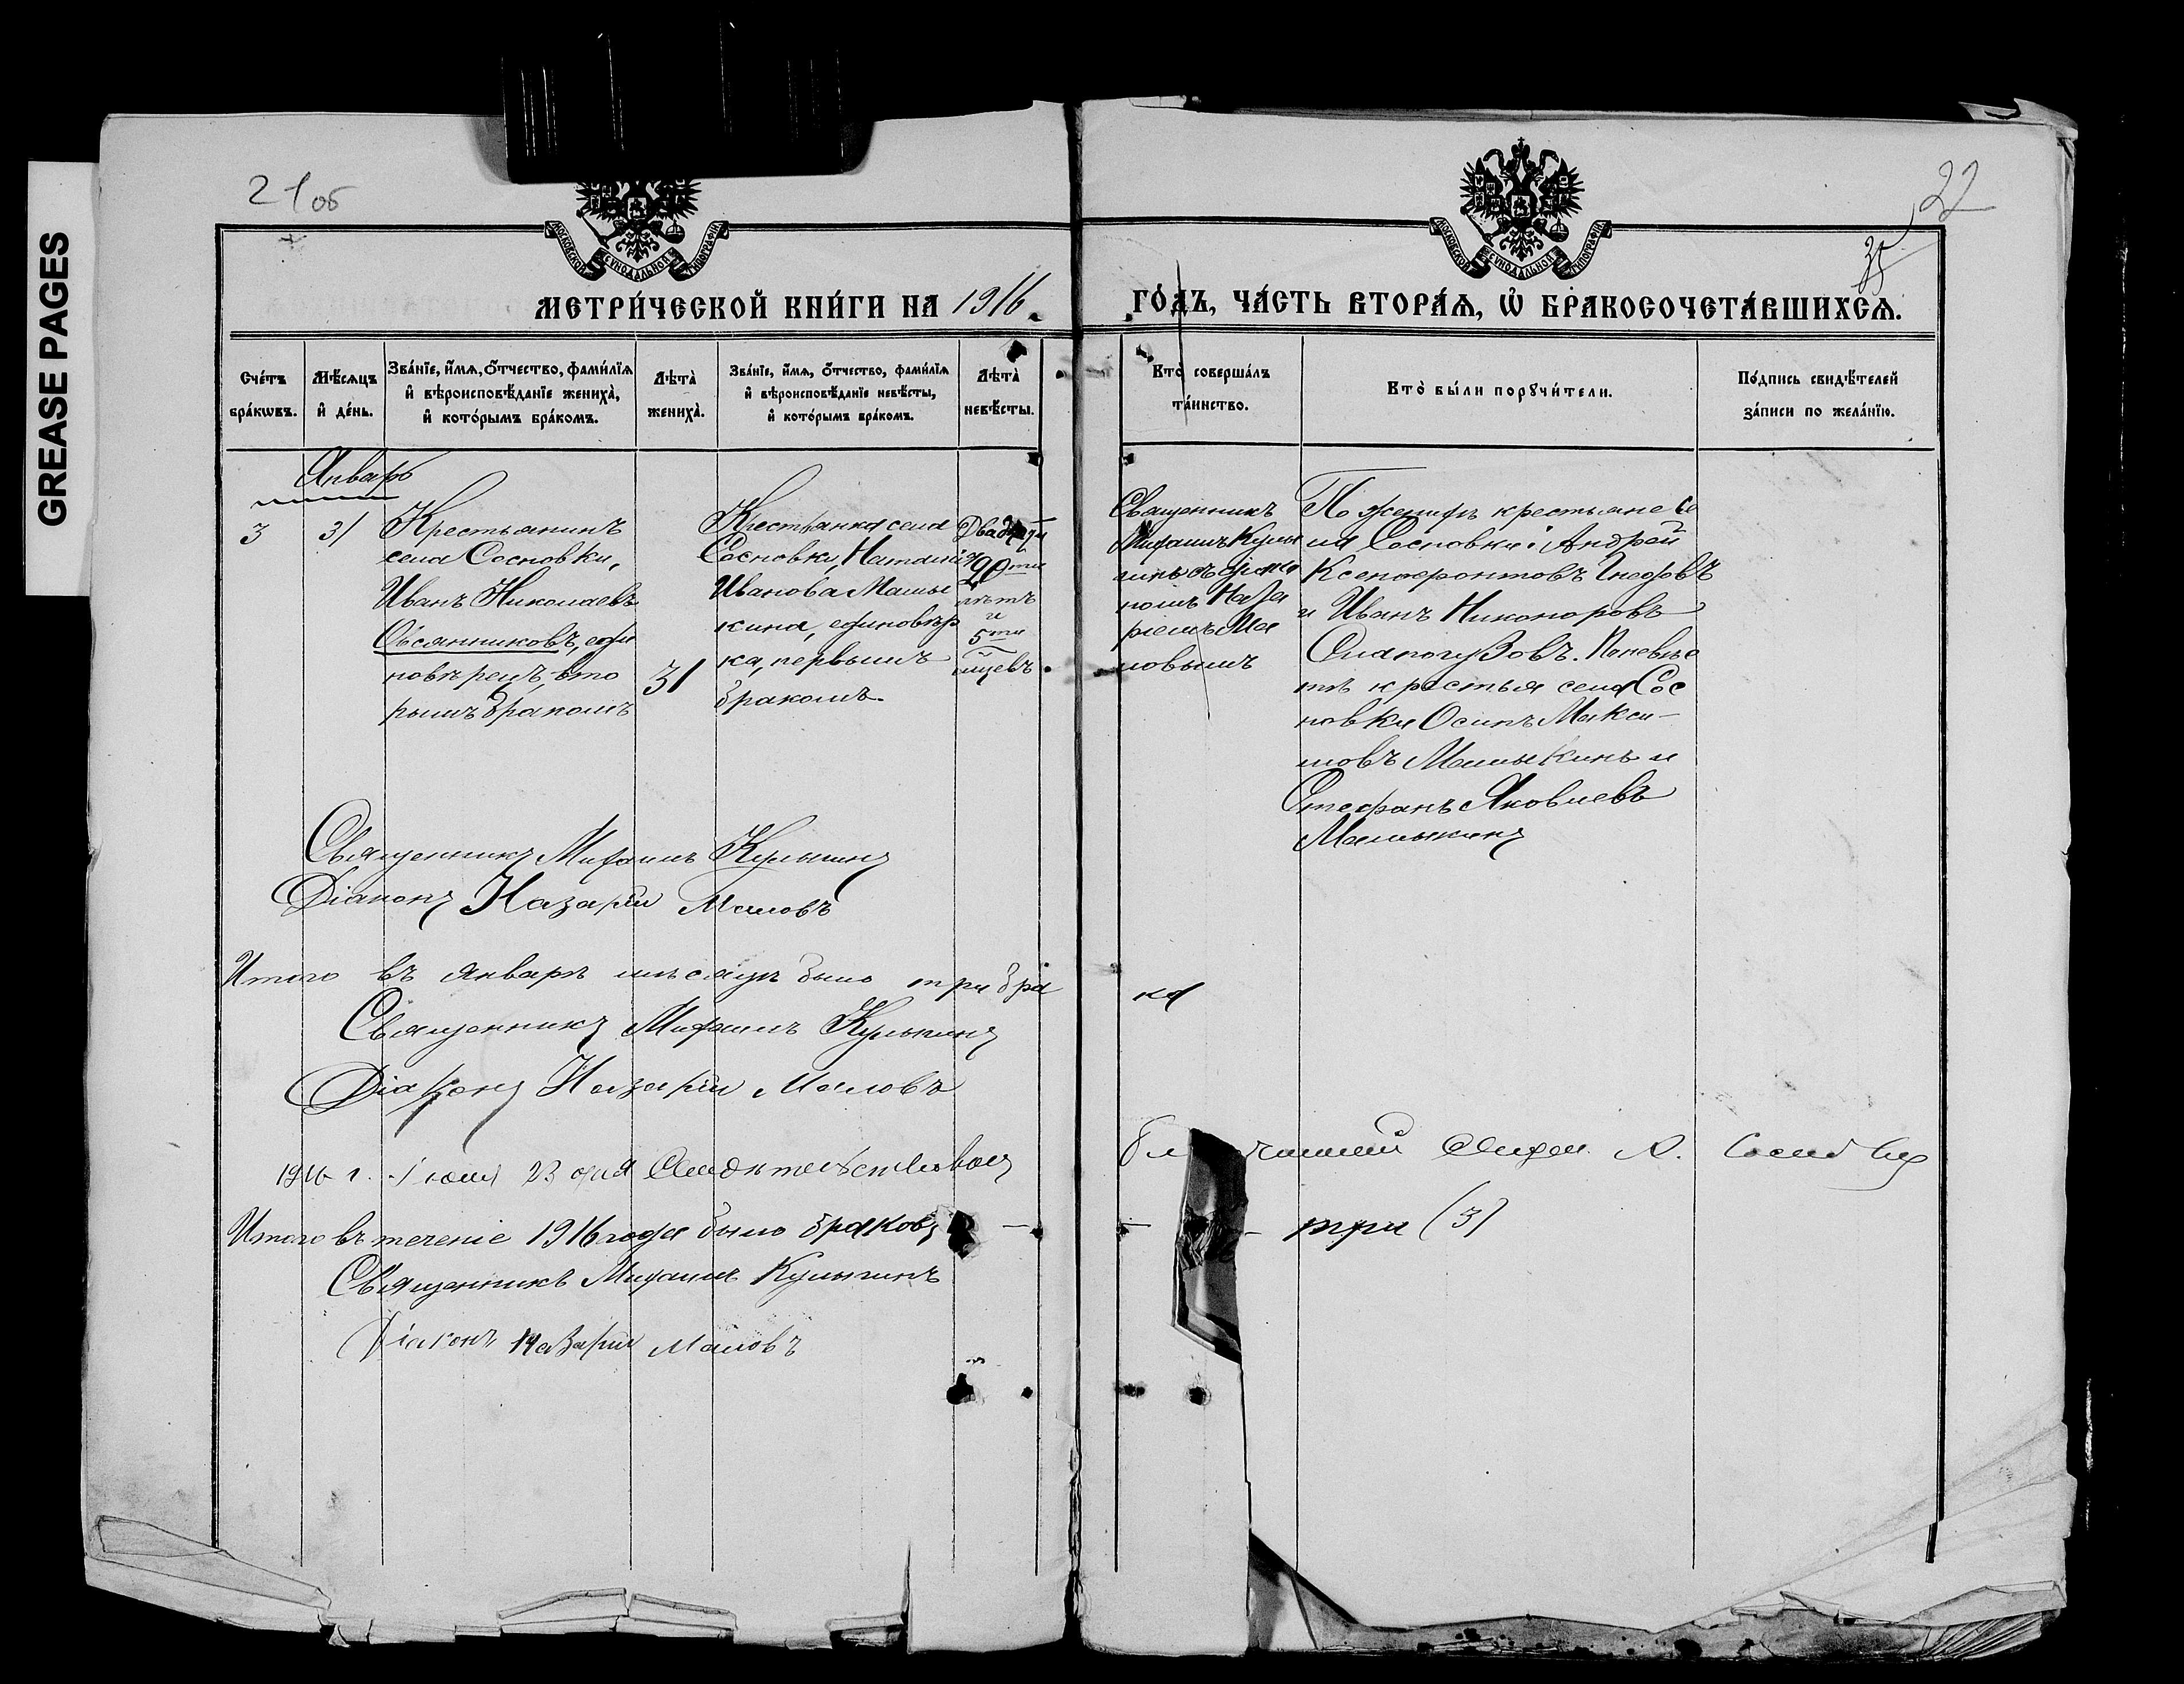 GREASE PAGES
21об
22
35
МОСКОВСКОЙ СѴНОДАЛЬНОЙ ТИПОГРАФІИ
МОСКОВСКОЙ СѴНОДАЛЬНОЙ ТИПОГРАФІИ
МЕТРИ́ЧЕСКОЙ КНИ́ГИ НА 1916
ГО́ДЪ, ЧА́СТЬ ВТОРА́Ѧ, Ѽ БРАКОСОЧЕТА́ВШИХСѦ.
Сче́тъ бра́кωвъ.
Мѣ́сяцъ и҆ де́нь.
Зва́нїе, и҆́мѧ, ѻ҆́тчество, фами́лїѧ и҆ вѣроисповѣ́данїе жениха̀, и҆ кото́рымъ бра́комъ.
Лѣта̀ жениха̀.
Зва́нїе, и҆́мѧ, ѻ҆́тчество, фами́лїѧ и҆ вѣроисповѣ́данїе невѣ́сты, и҆ кото́рымъ бра́комъ.
Лѣта̀ невѣ́сты.
Кто̀ соверша́лъ та́инство.
Кто̀ бы́ли порꙋчи́тели.
По́дпись свидѣ́телей за́писи по жела́нїю.
Январь
3
31
Крестьянинъ
села Сосновки,
Иванъ Николаевъ
Овсянниковъ, еди
новѣрецъ, вто
рымъ бракомъ
31
Крестьянка села
Сосновки, Наталія
Иванова Малы
кина, единовѣр
ка, первымъ
бракомъ.
Двадцати
20ти
лѣтъ
и
5ти
мѣсяцевъ
Священникъ
Михаилъ Кулы
гинъ съ діако
номъ Наза
ріемъ Ма
ловымъ
По женихѣ крестьяне се
ла Сосновки: Андрей
Ксенофонтовъ
и Иванъ Никоноровъ
По невѣс
тѣ крестья села Сос
новки Осипъ Макси-
мовъ Малыкинъ и
Стефанъ Яковлевъ
Малыкинъ
Священникъ Михаилъ Кулыгинъ
Діаконъ Назарій Маловъ
Итого въ январѣ мѣсяцѣ было три бра
ка
Священникъ Михаилъ Кулыгинъ
Діаконъ Назарій Маловъ
1916 г. Іюля 23 дня
Итого въ теченіе 1916 года было браковъ — — три (3)
Священникъ Михаилъ Кулыгинъ
Діаконъ Назарій Маловъ